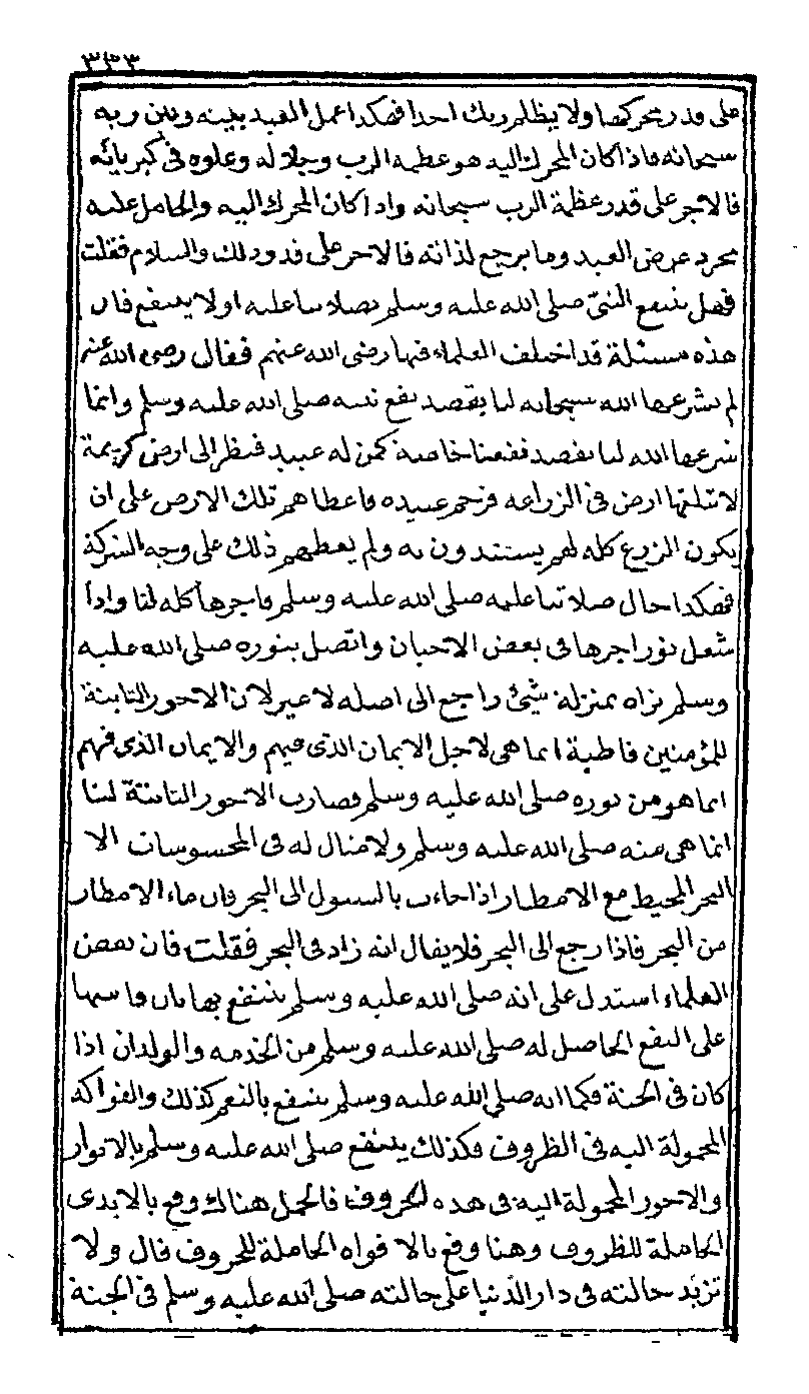 ٣٣٣
على قدر محركها ولا يظلم ربك احدا فهكذا عمل العبد بينه وبين ربه
سبحانه فاذا كان المحرك اليه هو عظمة الرب وجلاله وعلوه فى كبريائه
فالاجر على قدر عظمة الرب سبحانه واذا كان المحرك اليه والحامل عليه
مجرد غرض العبد وما يرجع لذاته فالاجر على قدر ذلك والسلام فقلت
فهل ينتفع النبىّ صلى الله عليه وسلم بصلاتنا عليه او لا ينتفع فان
هذه مسئلة قد اختلف العلماء فيها رضى الله عنهم فقال رضى الله عنه
لم يشرعها الله سبحانه لنا بقصد نفع نبيه صلى الله عليه وسلم وانما
شرعها الله لنا بقصد نفعنا خاصة كمن له عبيد فنظر الى ارض كريمة
لا تبلغها ارض فى الزراعه فرحم عبيده فاعطاهم تلك الارض على ان
يكون الزرع كله لهم يستبدون به ولم يعطهم ذلك على وجه الشركة
فهكذا حال صلاتنا عليه صلى الله عليه وسلم فاجرها كله لنا واذا
شعل نور اجرها فى بعض الاحيان واتصل بنوره صلى الله عليه
وسلم نراه بمنزلة شئ راجع الى اصله لا غير لان الاجور الثابتة
للمؤمنين قاطبة انما هى لاجل الايمان الذى فيهم والايمان الذى فيهم
انما هو من نوره صلى الله عليه وسلم فصارت الاجور الثابتة لنا
انما هى منه صلى الله عليه وسلم ولا مثال له فى المحسوسات الا
البحر المحيط مع الامطار اذا جاءت بالسيول الى البحر فان ماء الامطار
من البحر فاذا رجع الى البحر فلا يقال انه زاد فى البحر فقلت فان بعض
العلماء استدل على انه صلى الله عليه وسلم ينتفع بها بان قاسها
على النفع الحاصل له صلى الله عليه وسلم من الخدمه والولدان اذا
كان فى الجنة فكما انه صلى الله عليه وسلم ينتفع بالنعم كذلك والفواكه
المحمولة اليه فى الظروف فكذلك ينتفع صلى الله عليه وسلم بالانوار
والاجور المحمولة اليه فى هذه الحروف فالحمل هناك وقع بالايدى
الحاملة للظروف وهنا وقع بالافواه الحاملة للحروف قال ولا
تزيد حالته فى دار الدنيا على حالته صلى الله عليه وسلم فى الجنة